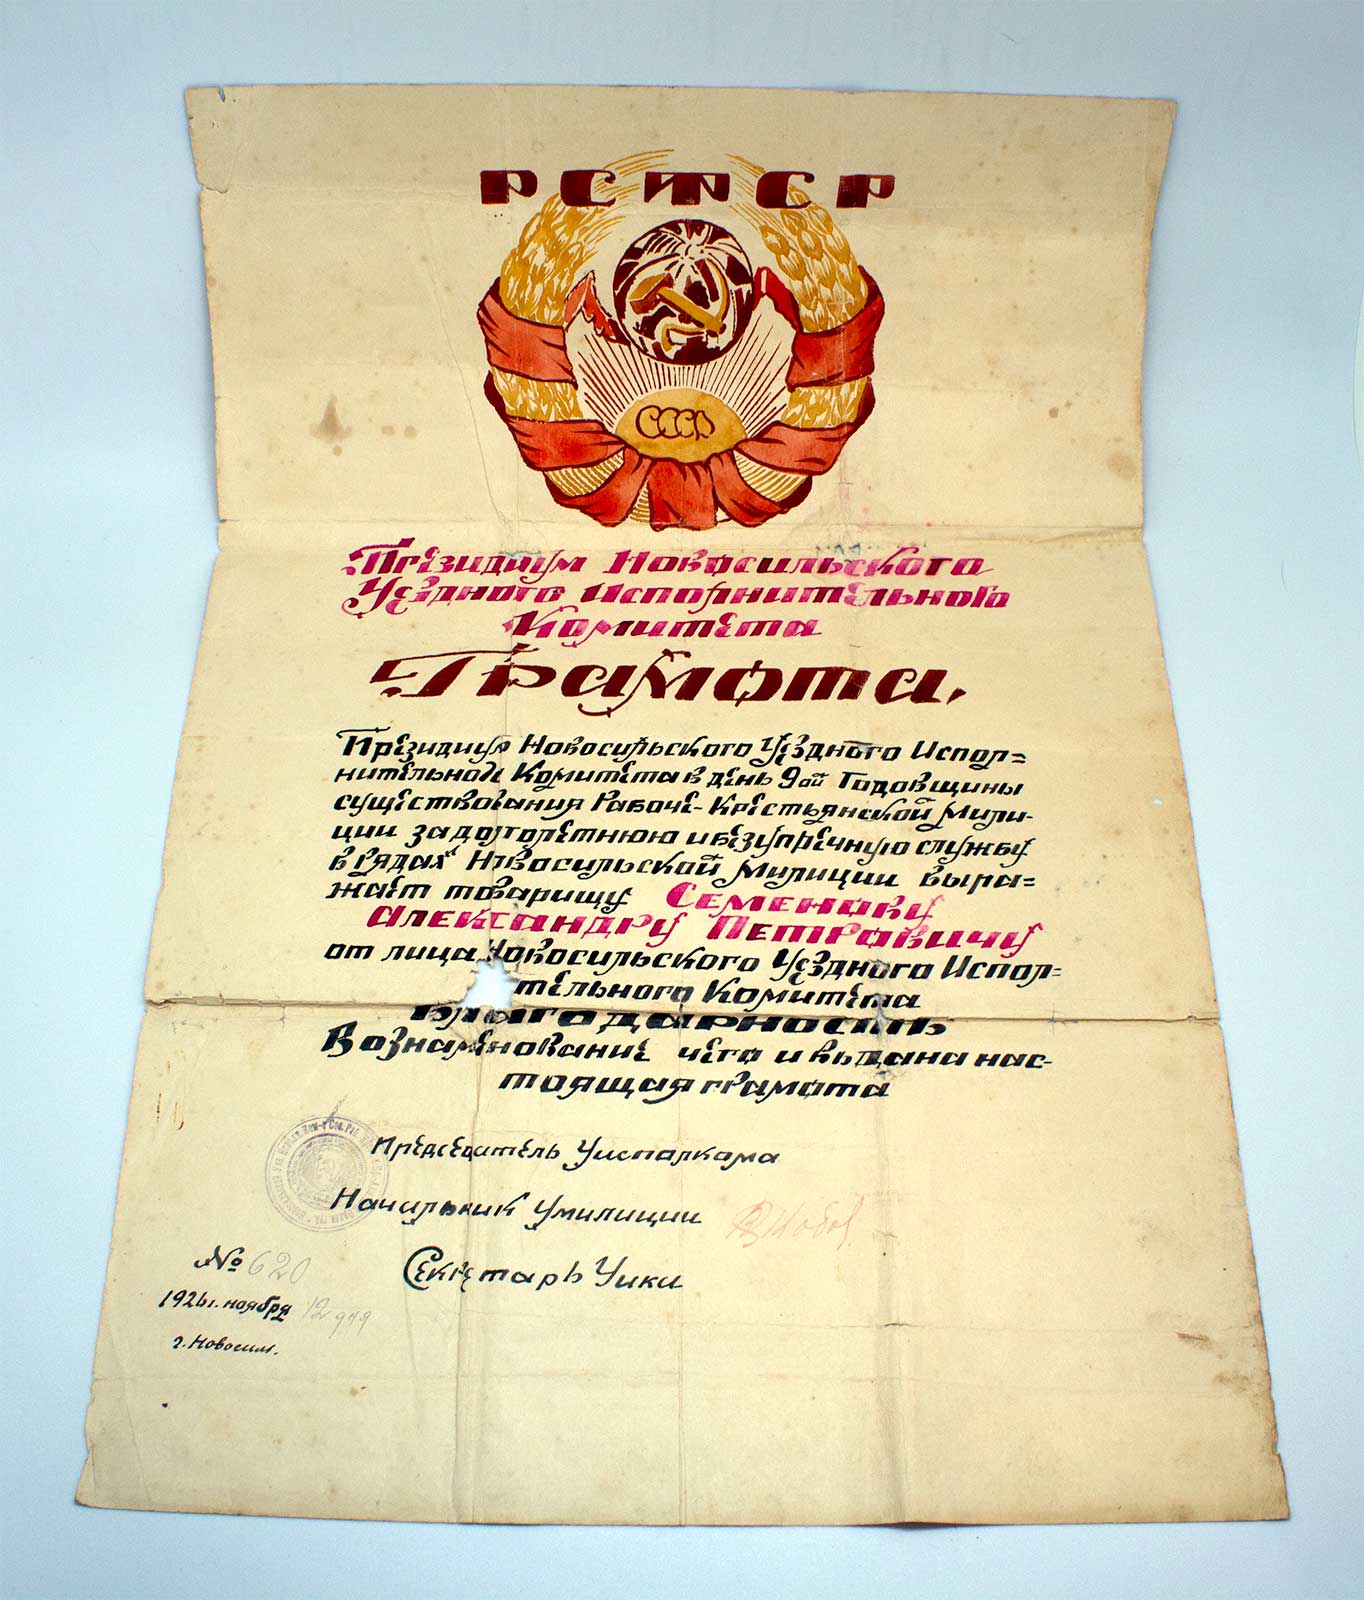 РСФСР
СССР
Президиум Новосильского
Уездного Исполнительного
Комитета
Грамота.
Президиум Новосильского Уездного Испол=
нительного Комитета в день 9ой Годовщины
существования Рабоче-Крестьянской Мили-
ции за долголетнюю и безупречную службу
в рядах Новосильской Милиции выра=
жает товарищу Семенову
Александру Петровичу
от лица Новосильского Уездного Испол=
тельного Комитета
Благодарность
В ознаменование чего и выдана нас-
тоящая грамота
Председатель Уисполкома
Начальник Умилиции
Секретарь Уика
№ 620
1926 г. ноября 12 дня
г. Новосиль.